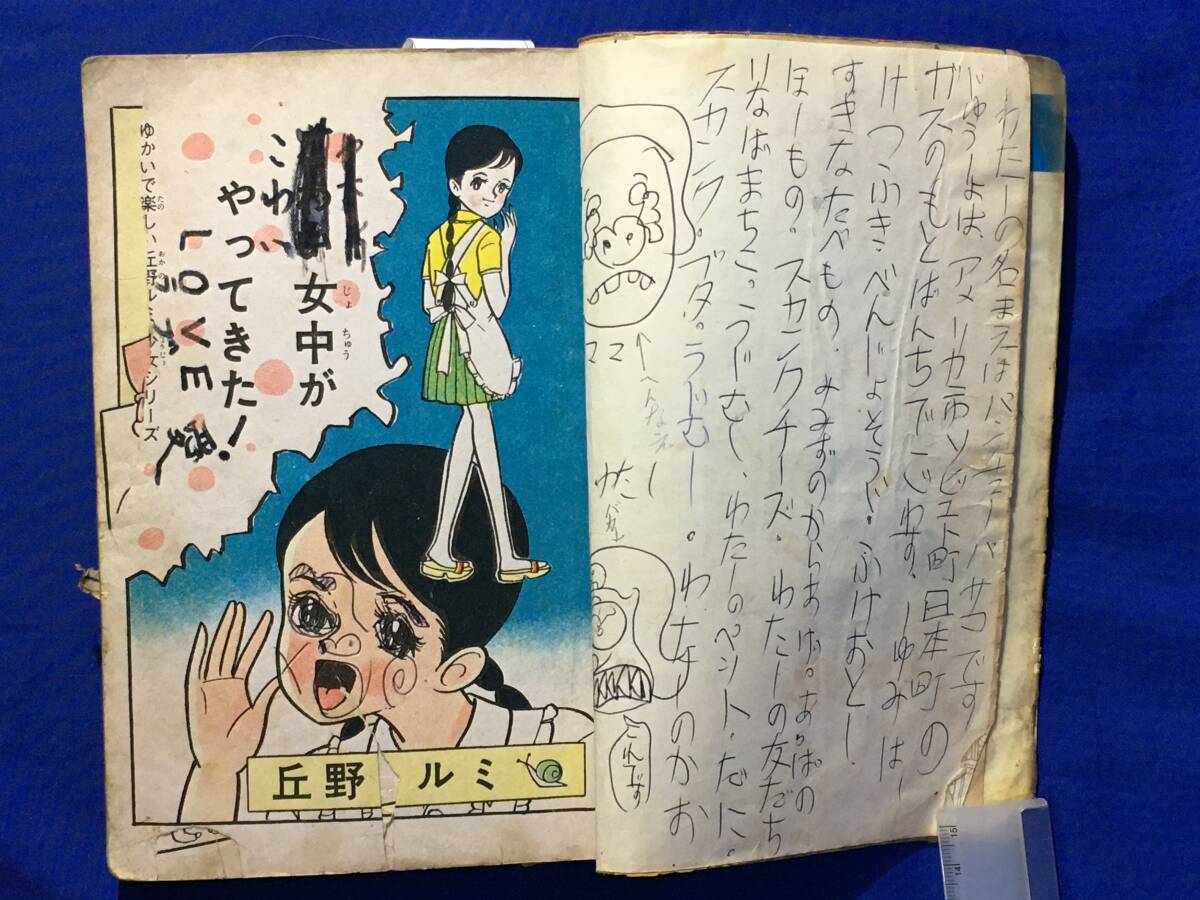 わたしの名まえはパンダーバサコです
じゅうしよは アメリカ市ソビエト町日本町の
ガスのもとばんちでごわす。しゆみは
けつふき・べんじょそうじ・ふけおとし
すきなたべもの、みみずのからあげ。おっぱの
ほしもの。スカンクチーズ。わたしの友だち
いなばまちこ。こうじむし、わたしのペント・だに・
スカンク。ブタ。うじむし。わたすのかお
↑へんなえ
ママ
これです
ゆかいで楽しい丘野ルミ少女シリーズ
こわい
女中が
やってきた!
LOVE
丘野ルミ
15
14